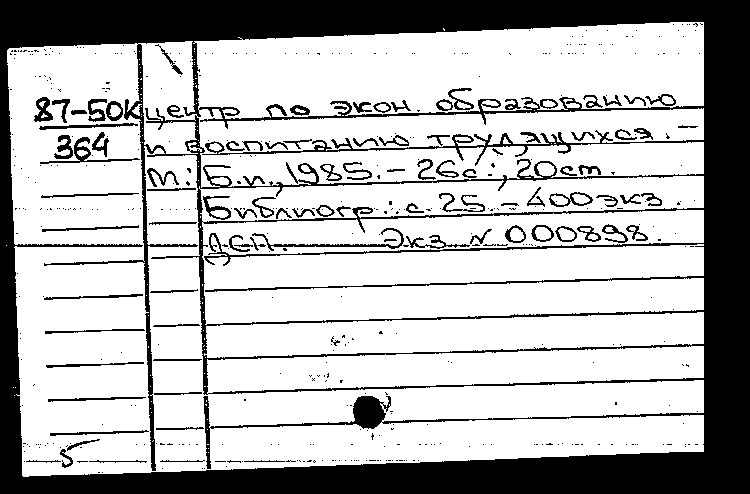 87-50К центр по экон. образованию
364 и воспитанию трудящихся. –
М.: Б.и., 1985. – 26с.; 20см.
Библиогр.: с. 25. – 400 экз.
ДСП. Экз N 000898.
5